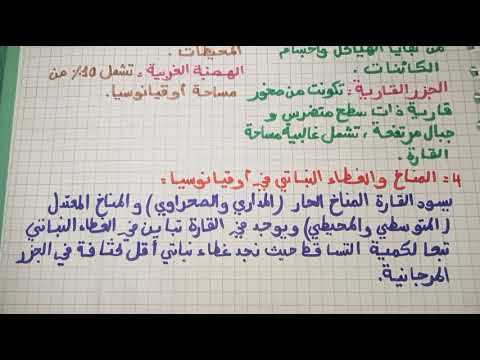 من بقايا الهياكل وأجسام
الكائنات.
الجزر القارية: تكونت من صخور
قارية ذات سطح متضرس و
جبال مرتفعة، تشمل غالبية مساحة
القارة.
المحيطات.
الهضبة الغربية: تشمل 10% من
مساحة أوقيانوسيا.
4= المناخ والغطاء النباتي في أوقيانوسيا:
يسود القارة المناخ الحار (المداري والصحراوي) والمناخ المعتدل
(المتوسطي والمحيطي) ويوجد في القارة تباين في الغطاء النباتي
تبعا لكمية التساقط حيث نجد غطاء نباتي أقل كثافة في الجزر
المرجانية.